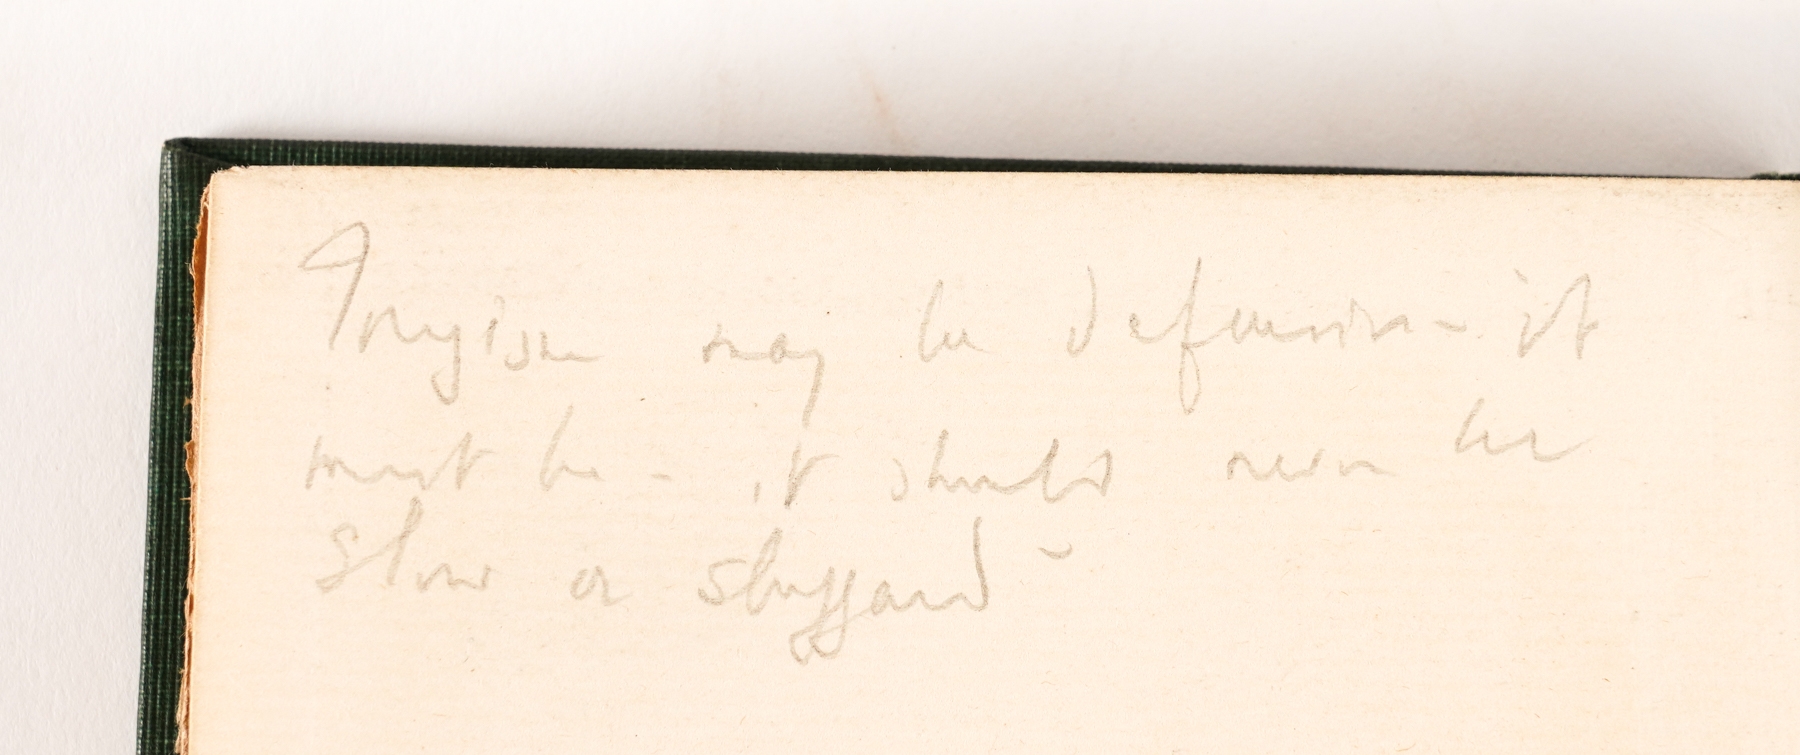 Toryism may be defensive - it
must be - it should never be
slow or sluggard -